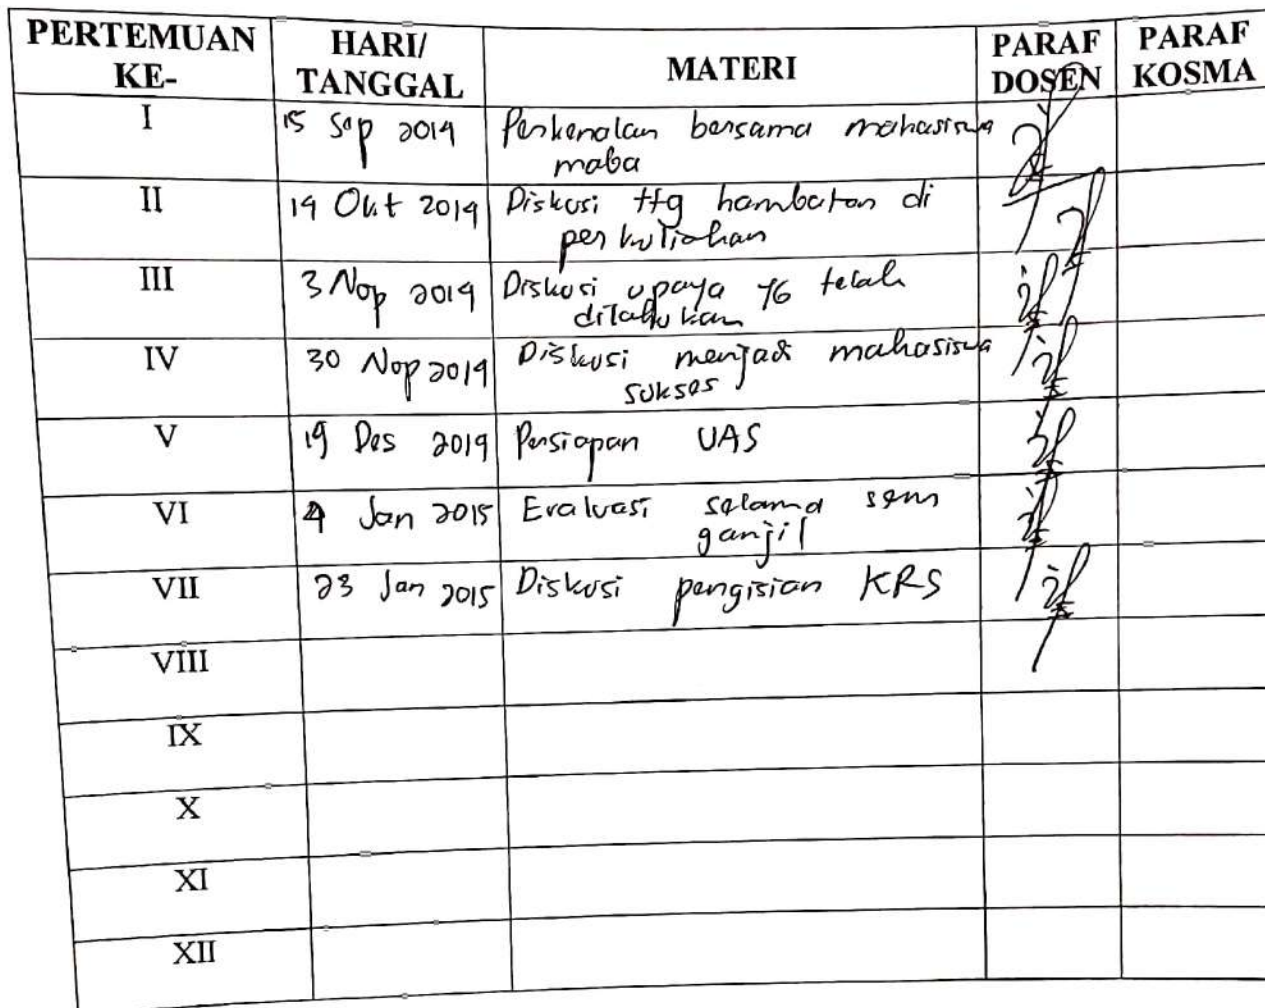 PERTEMUAN KE- HARI/ TANGGAL MATERI PARAF DOSEN PARAF KOSMA
I 15 Sep 2014 Perkenalan bersama mahasiswa
maba
II 14 Okt 2014 Diskusi ttg hambatan di
perkuliahan
III 3 Nop 2014 Diskusi upaya yg telah
dilakukan
IV 30 Nop 2014 Diskusi menjadi mahasiswa
sukses
V 19 Des 2014 Persiapan UAS
VI 4 Jan 2015 Evaluasi selama sem
ganjil
VII 23 Jan 2015 Diskusi pengisian KRS
VIII
IX
X
XI
XII